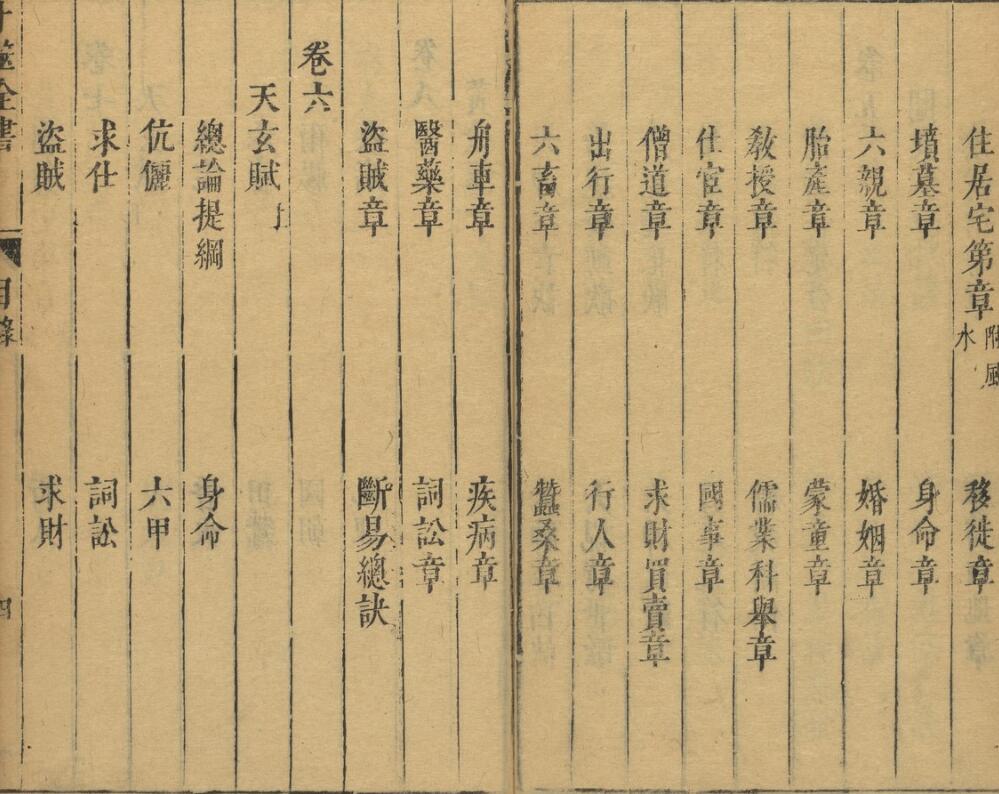 住居宅第章 附風水 移徙章
墳墓章 身命章
六親章 婚姻章
胎產章 蒙童章
教授章 儒業科舉章
仕宦章 國事章
僧道章 求財買賣章
出行章 行人章
六畜章 蠶桑章
舟車章 疾病章
醫藥章 詞訟章
盜賊章 斷易總訣
卷六
天玄賦
總論提綱 身命
伉儷 六甲
求仕 詞訟
盜賊 求財
卜筮全書 目錄 四